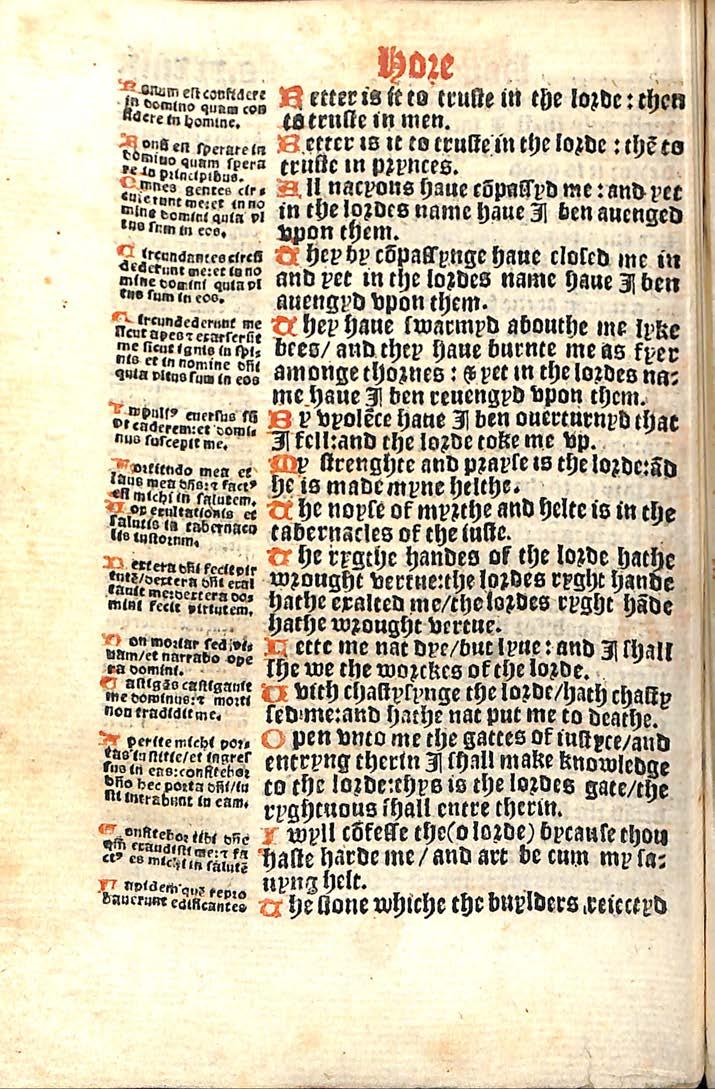 Hore
Bonum est confidere
in domino quam con
fidere in homine.
Bonū est sperare in
domino quam spera
re in principibus.
Omnes gentes cir⸗
cuierunt me: et in no
mine domini quia vl
tus sum in eos.
Circundantes circū
dederunt me: et in no
mine domini quia vl
tus sum in eos.
Circundederunt me
sicut apes ⁊ exarserūt
me sicut ignis in spi⸗
nis et in nomine dñi
quia vltus sum in eos
Impulsꝰ euersus sū
vt caderem: et domi⸗
nus suscepit me.
Fortitudo mea et
laus mea dñs: ⁊ factꝰ
est michi in salutem.
Vox exultationis et
salutis in tabernacu
lis iustorum.
Dextera dñi fecit vir
tutē/dextera dñi exal
tauit me: dextera do⸗
mini fecit virtutem.
Non moriar sed vi⸗
uam/et narrabo ope
ra domini.
Castigās castigauit
me dominus: ⁊ morti
non tradidit me.
Aperite michi por⸗
tas iustitie/et ingres
sus in eas: confitebor
dño hec porta dñi/iu
sti intrabunt in eam.
Confitebor tibi dñe
qm̄ exaudisti me: ⁊ fa
ctꝰ es michi in salutē
Lapidem quē repro
bauerunt edificantes
Better is it to truste in the lorde: then
to truste in men.
Better is it to truste in the lorde: thē to
truste in prynces.
All nacyons haue cōpassyd me: and yet
in the lordes name haue I ben auenged
vpon them.
They by cōpassynge haue closed me in
and yet in the lordes name haue I ben
auengyd vpon them.
They haue swarmyd abouthe me lyke
bees/ and they haue burnte me as fyer
amonge thornes: & yet in the lordes na⸗
me haue I ben reuengyd vpon them.
By vyolēce haue I ben ouerturnyd that
I fell: and the lorde toke me vp.
My strenghte and prayse is the lorde: ād
he is made myne helthe.
The noyse of myrthe and helte is in the
tabernacles of the iuste.
The rygthe handes of the lorde hathe
wrought vertue: the lordes ryght hande
hathe exalted me/the lordes ryght hāde
hathe wrought vertue.
Lette me nat dye/but lyue: and I shall
she we the worckes of the lorde.
Vvith chastysynge the lorde/hath chasty
sed me: and hathe nat put me to deathe.
Open vnto me the gattes of iustyce/and
entryng therin I shall make knowledge
to the lorde: thys is the lordes gate/the
ryghtuous shall entre therin.
I wyll cōfesse the (o lorde) bycause thou
haste harde me/ and art be cum my sa⸗
uyng helt.
The stone whiche the buylders reiectyd